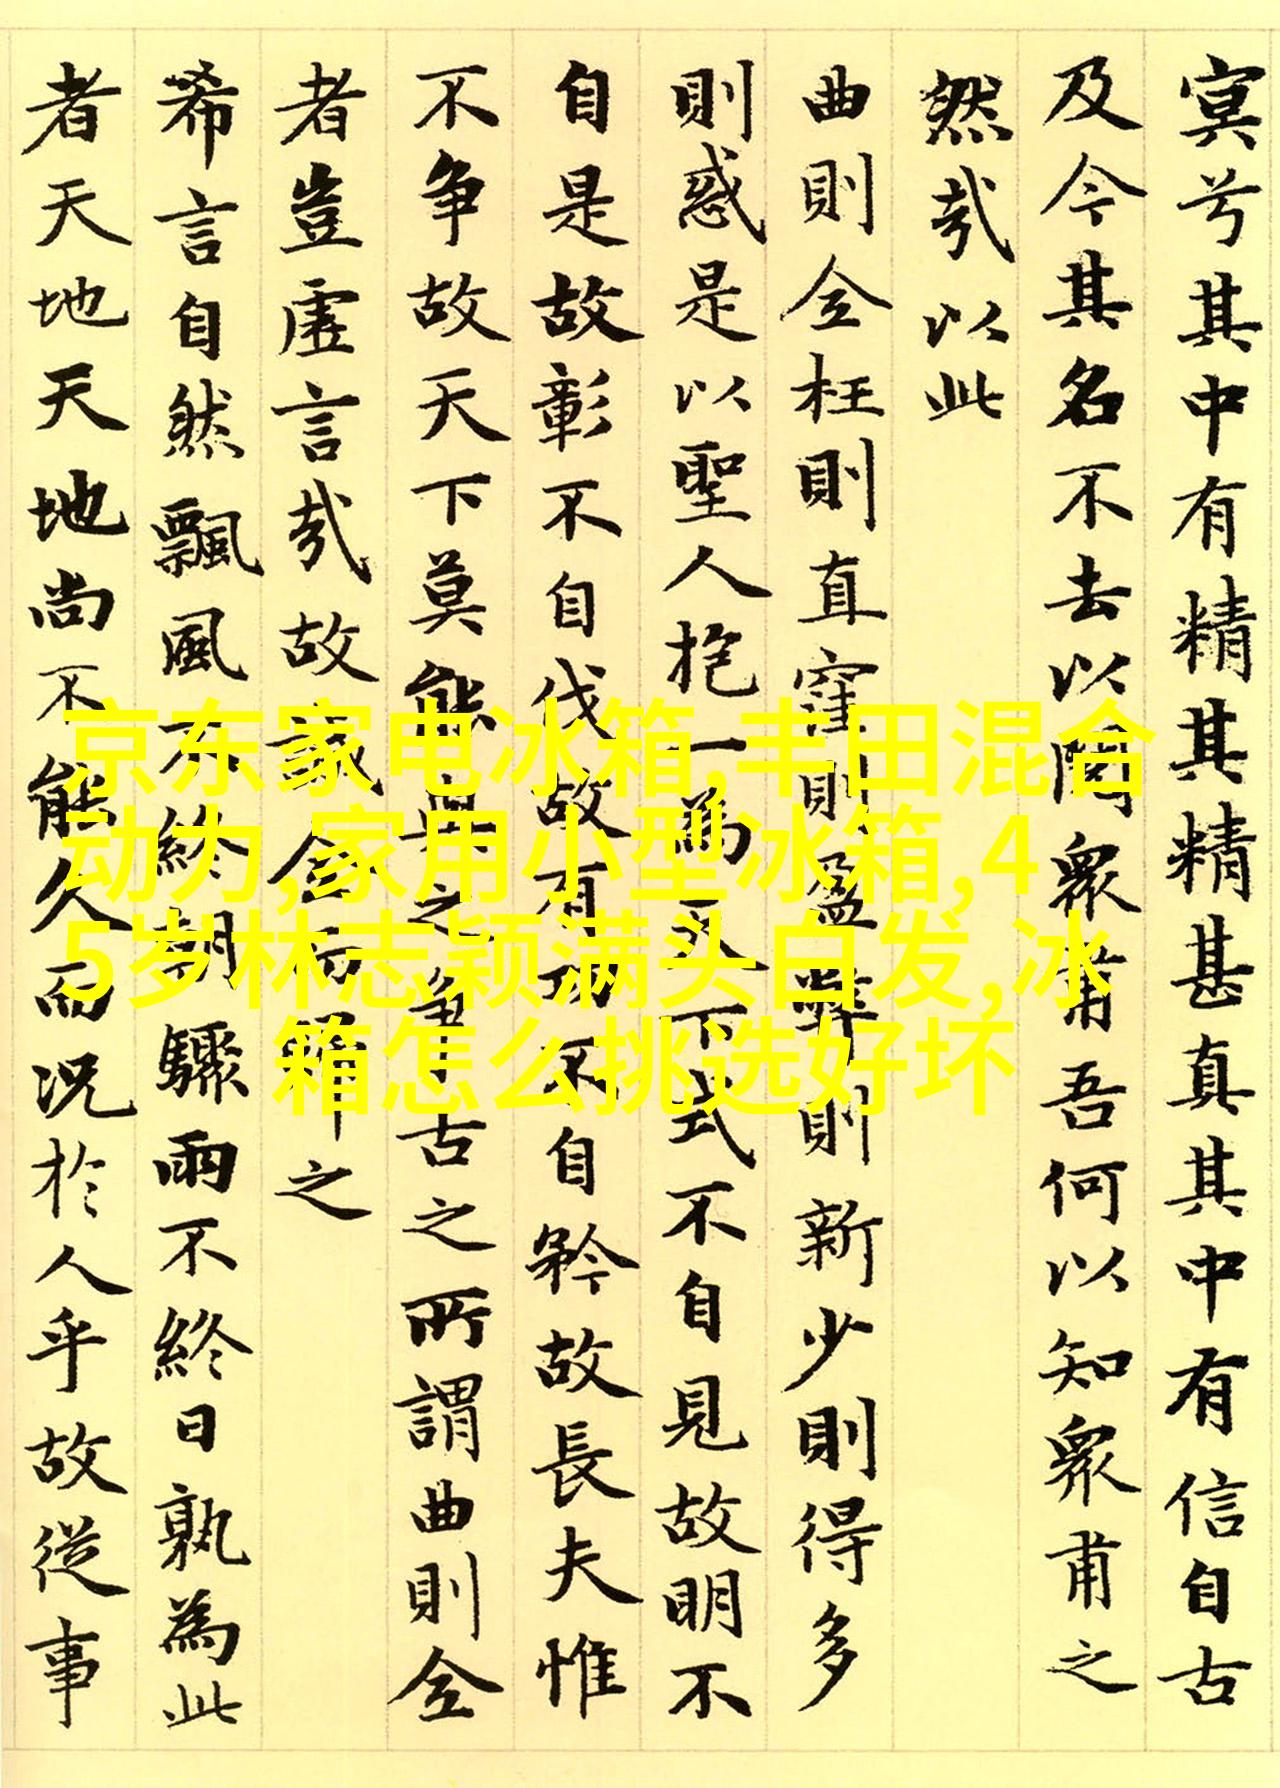 寞兮其中有精其精甚真其中有信自古
及今其名不去以閱衆甫吾何以知衆甫之
然㦲以此
曲則全枉則直窪則盈弊則新少則得多
則惑是以聖人抱一為天下式不自見故明不
自是故彰不自伐故有功不自矜故長夫惟
不争故天下莫能與之争古之所謂曲則全
者豈虛言㦲故誠全而歸之
希言自然飄風不終朝驟雨不終日孰為此
者天地天地尚不能久而況於人乎故從事
京东家电冰箱,丰田混合
动力,家用小型冰箱,4
5岁林志颖满头白发,冰
箱怎么挑选好坏